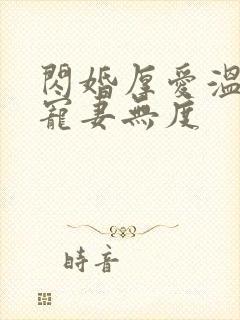 閃婚厚愛溫
寵妻無度
時音